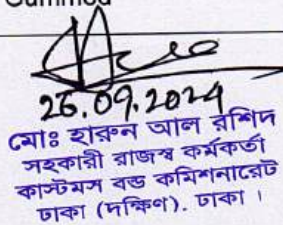 26.09.2024
মোঃ হারুন আল রশিদ
সহকারী রাজস্ব কর্মকর্তা
কাস্টমস বন্ড কমিশনারেট
ঢাকা (দক্ষিণ). ঢাকা ।